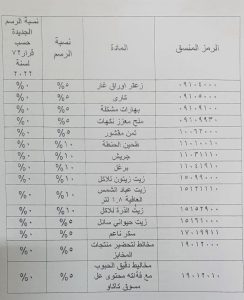 الرمز المنسق المادة نسبة الرسم نسبة الرسم الجديدة حسب قرار ٧٢ لسنة ٢٠٢٢
٠٩١٠٤٠٠٠ زعتر اوراق غار %٥ %٠
٠٩١٠٥٠٠٠ كاري %٥ %٠
٠٩١٠٩١٠٠ بهارات مشكلة %٥ %٠
٠٩١٠٩٩٣٠ ملح معزز نكهات %٥ %٠
١٠٠٦٢٠٠٠ تمن مقشور %٥ %٠
١١٠١٠٠١٠ طحين الحنطة %١٠ %٠
١١٠٣١١١٠ جريش %١٠ %٠
برغل %١٠ %٠
١٥٠٩٩٠٠٠ زيت زيتون للاكل %١٠ %٠
زيت عباد الشمس العافية ١,٨ لتر %١٠ %٠
١٥١٥٢٩٠٠ زيت الذرة للاكل %١٠ %٠
زيت حيواني سائل %٥ %٠
١٧٠١٩٩١١ سكر ناعم %٥ %٠
١٩٠١٢٠٠٠ مخاليط لتحضير منتجات المخابز %٥ %٠
١٩٠١٢٠١٠ مخاليط دقيق الحبوب مع محتوى على مسحوق كاكاو %٥ %٠